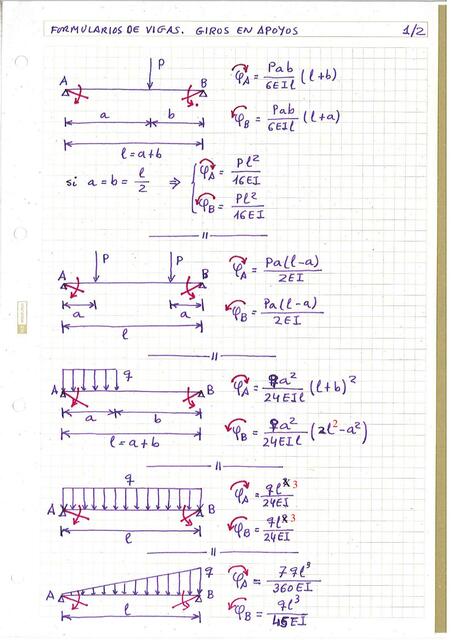 FORMULARIOS DE VIGAS. GIROS EN APOYOS 1/2
P
A B
a b
l = a+b
φA = Pab/6EIl (l+b)
φB = Pab/6EIl (l+a)
si a = b = l/2 ⇒ { φA = Pl²/16EI
φB = Pl²/16EI
P P
A B
a a
l
φA = Pa(l-a)/2EI
φB = Pa(l-a)/2EI
q
A B
a b
l = a+b
φA = qa²/24EIl (l+b)²
φB = qa²/24EIl (2l²-a²)
q
A B
l
φA = ql³/24EI
φB = ql³/24EI
q
A B
l
φA = 7ql³/360EI
φB = ql³/45EI